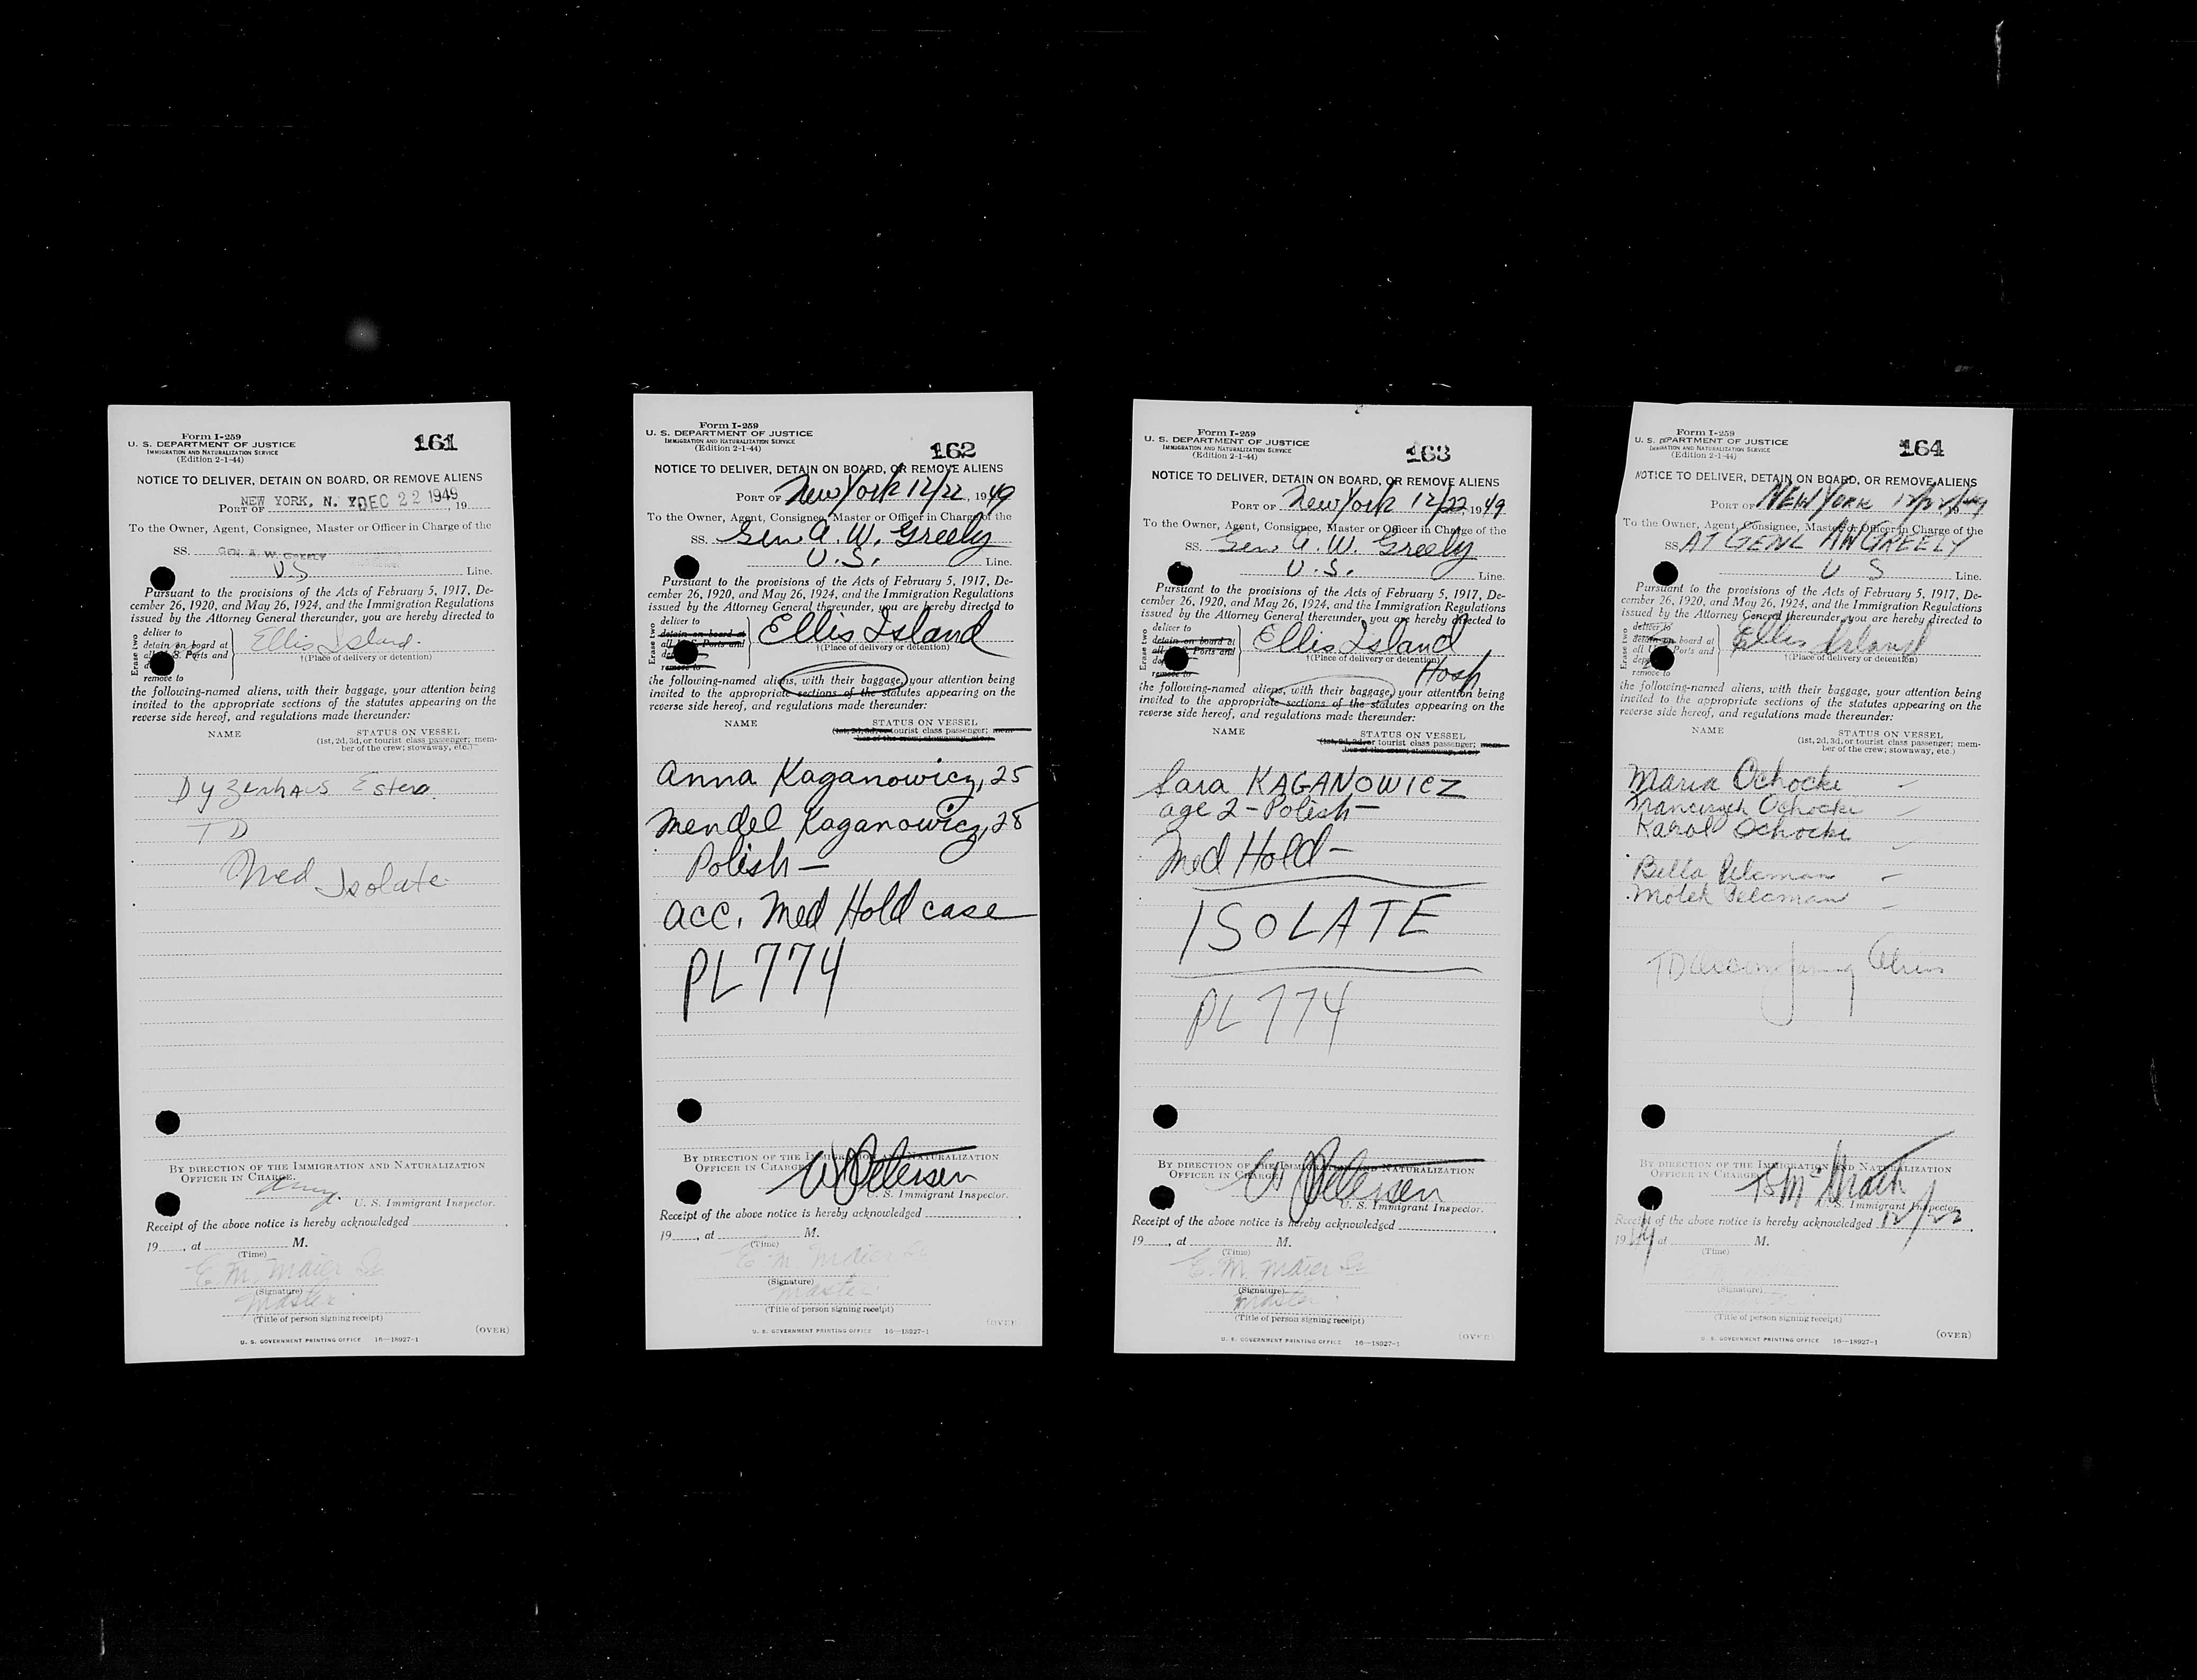 Form I-259
U. S. DEPARTMENT OF JUSTICE
IMMIGRATION AND NATURALIZATION SERVICE
(Edition 2-1-44)
161
NOTICE TO DELIVER, DETAIN ON BOARD, OR REMOVE ALIENS
PORT OF NEW YORK, N. Y. DEC 22 1949, 19
To the Owner, Agent, Consignee, Master or Officer in Charge of the
SS. GEN. A. W. GREELY
U.S Line.
Pursuant to the provisions of the Acts of February 5, 1917, De-
cember 26, 1920, and May 26, 1924, and the Immigration Regulations
issued by the Attorney General thereunder, you are hereby directed to
Erase two
deliver to
detain on board at
all S. Ports and
remove to
Ellis Island.
†(Place of delivery or detention)
the following-named aliens, with their baggage, your attention being
invited to the appropriate sections of the statutes appearing on the
reverse side hereof, and regulations made thereunder:
NAME STATUS ON VESSEL
(1st, 2d, 3d, or tourist class passenger; mem-
ber of the crew; stowaway, etc.)
Dyzenhaus Estera
TD
Med Isolate
BY DIRECTION OF THE IMMIGRATION AND NATURALIZATION
OFFICER IN CHARGE.
U. S. Immigrant Inspector.
Receipt of the above notice is hereby acknowledged
19, at M.
(Time)
E. M. Maier Sr
(Signature)
Master
(Title of person signing receipt)
U. S. GOVERNMENT PRINTING OFFICE 16—18927-1
(OVER)
Form I-259
U. S. DEPARTMENT OF JUSTICE
IMMIGRATION AND NATURALIZATION SERVICE
(Edition 2-1-44)
162
NOTICE TO DELIVER, DETAIN ON BOARD, OR REMOVE ALIENS
PORT OF New York 12/22, 1949
To the Owner, Agent, Consignee, Master or Officer in Charge of the
SS. Gen. A. W. Greely
U.S. Line.
Pursuant to the provisions of the Acts of February 5, 1917, De-
cember 26, 1920, and May 26, 1924, and the Immigration Regulations
issued by the Attorney General thereunder, you are hereby directed to
Erase two
deliver to
detain on board at
S. Ports and
remove to
Ellis Island
†(Place of delivery or detention)
the following-named aliens, with their baggage, your attention being
invited to the appropriate sections of the statutes appearing on the
reverse side hereof, and regulations made thereunder:
NAME STATUS ON VESSEL
(1st, 2d, 3d, or tourist class passenger; mem-
ber of the crew; stowaway, etc.)
Anna Kaganowicz, 25
Mendel Kaganowicz, 28
Polish —
acc. Med Hold case
PL 774
BY DIRECTION OF THE IMMIGRATION AND NATURALIZATION
OFFICER IN CHARGE.
W Petersen
U. S. Immigrant Inspector.
Receipt of the above notice is hereby acknowledged
19, at M.
(Time)
E. M. Maier Sr
(Signature)
Master
(Title of person signing receipt)
U. S. GOVERNMENT PRINTING OFFICE 16—18927-1
(OVER)
Form I-259
U. S. DEPARTMENT OF JUSTICE
IMMIGRATION AND NATURALIZATION SERVICE
(Edition 2-1-44)
163
NOTICE TO DELIVER, DETAIN ON BOARD, OR REMOVE ALIENS
PORT OF New York 12/22, 1949
To the Owner, Agent, Consignee, Master or Officer in Charge of the
SS. Gen. A. W. Greely
U.S. Line.
Pursuant to the provisions of the Acts of February 5, 1917, De-
cember 26, 1920, and May 26, 1924, and the Immigration Regulations
issued by the Attorney General thereunder, you are hereby directed to
Erase two
deliver to
detain on board at
all S. Ports and
remove to
Ellis Island
†(Place of delivery or detention)
Hosp
the following-named aliens, with their baggage, your attention being
invited to the appropriate sections of the statutes appearing on the
reverse side hereof, and regulations made thereunder:
NAME STATUS ON VESSEL
(1st, 2d, 3d, or tourist class passenger; mem-
ber of the crew; stowaway, etc.)
Sara KAGANOWICZ
age 2 - Polish —
Med Hold —
ISOLATE
PL 774
BY DIRECTION OF THE IMMIGRATION AND NATURALIZATION
OFFICER IN CHARGE.
W Petersen
U. S. Immigrant Inspector.
Receipt of the above notice is hereby acknowledged
19, at M.
(Time)
E. M. Maier Sr
(Signature)
Master
(Title of person signing receipt)
U. S. GOVERNMENT PRINTING OFFICE 16—18927-1
(OVER)
Form I-259
U. S. DEPARTMENT OF JUSTICE
IMMIGRATION AND NATURALIZATION SERVICE
(Edition 2-1-44)
164
NOTICE TO DELIVER, DETAIN ON BOARD, OR REMOVE ALIENS
PORT OF NEW YORK 12/22/49
To the Owner, Agent, Consignee, Master or Officer in Charge of the
SS. AT GENL AW GREELY
U S Line.
Pursuant to the provisions of the Acts of February 5, 1917, De-
cember 26, 1920, and May 26, 1924, and the Immigration Regulations
issued by the Attorney General thereunder, you are hereby directed to
Erase two
deliver to
detain on board at
all U Ports and
remove to
Ellis Island
†(Place of delivery or detention)
the following-named aliens, with their baggage, your attention being
invited to the appropriate sections of the statutes appearing on the
reverse side hereof, and regulations made thereunder:
NAME STATUS ON VESSEL
(1st, 2d, 3d, or tourist class passenger; mem-
ber of the crew; stowaway, etc.)
Maria Ochocki
Franciszek Ochocki
Karol Ochocki
Bella Pelcman
Motek Pelcman
TD accompanying aliens
BY DIRECTION OF THE IMMIGRATION AND NATURALIZATION
OFFICER IN CHARGE.
McGrath
U. S. Immigrant Inspector.
Receipt of the above notice is hereby acknowledged 12/22
19 at M.
(Time)
(Signature)
(Title of person signing receipt)
U. S. GOVERNMENT PRINTING OFFICE 16—18927-1
(OVER)